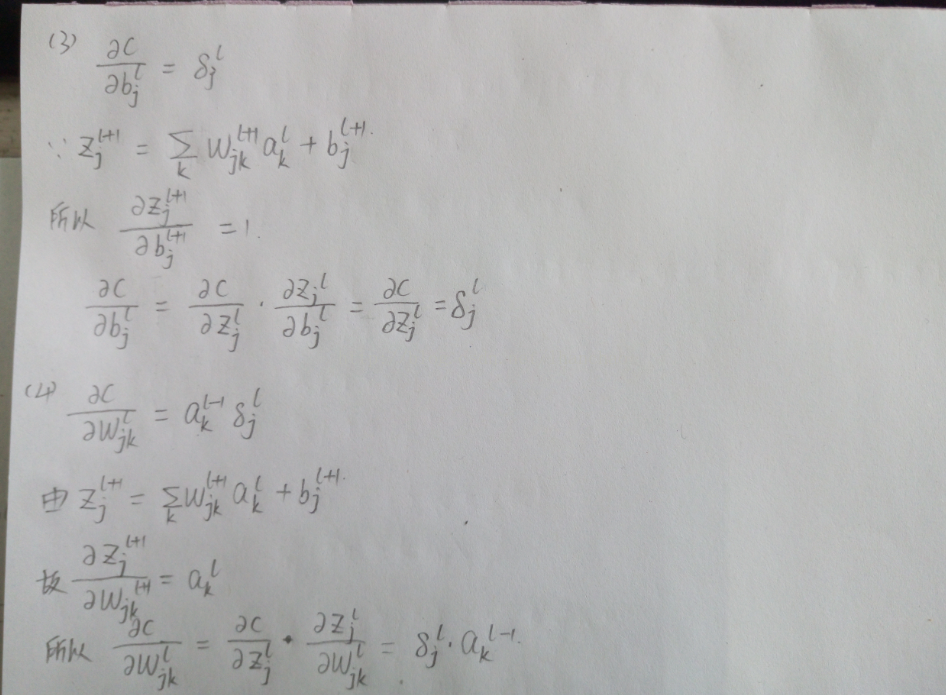 (3) ∂C/∂b_j^l = δ_j^l
∵ z_j^{l+1} = Σ_k w_{jk}^{l+1} a_k^l + b_j^{l+1}.
所以 ∂z_j^{l+1}/∂b_j^{l+1} = 1.
∂C/∂b_j^l = ∂C/∂z_j^l · ∂z_j^l/∂b_j^l = ∂C/∂z_j^l = δ_j^l
(4) ∂C/∂w_{jk}^l = a_k^{l-1} δ_j^l
由 z_j^{l+1} = Σ_k w_{jk}^{l+1} a_k^l + b_j^{l+1}.
故 ∂z_j^{l+1}/∂w_{jk}^{l+1} = a_k^l
所以 ∂C/∂w_{jk}^l = ∂C/∂z_j^l · ∂z_j^l/∂w_{jk}^l = δ_j^l · a_k^{l-1}.